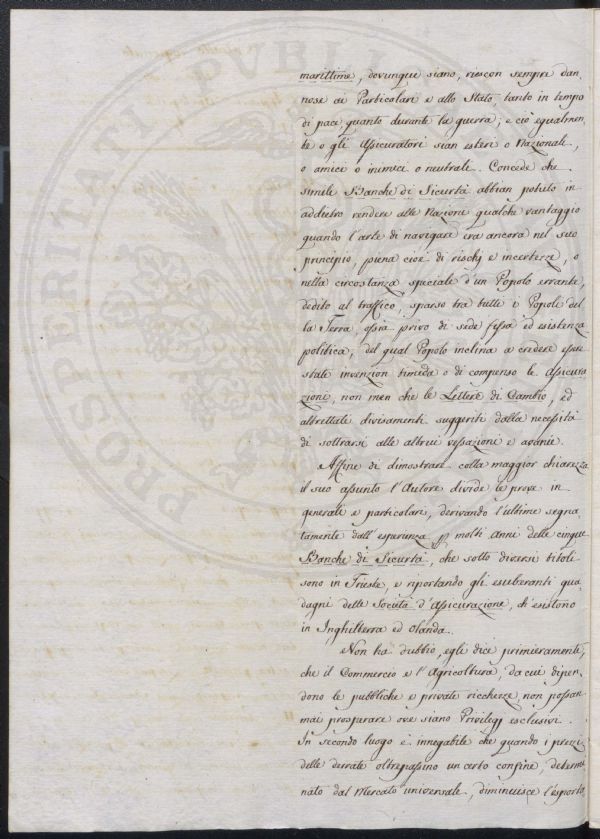 marittime, dovunque siano, riescon sempre dan,
nose ai Particolari e allo Stato, tanto in tempo
di pace quanto durante la guerra; e ciò egualmen,
te o gli Assicuratori sian esteri o Nazionali,
o amici o inimici o neutrali. Concede che
simile Banche di Sicurtà abbian potuto in
addietro rendere alle Nazioni qualche vantaggio
quando l'arte di navigare era ancora nel suo
principio, piena cioè di rischj e incertezze, o
nella circostanza speciale d'un Popolo errante,
dedito al traffico, sparso tra tutti i Popoli del
la Terra, ossia privo di sede fissa ed esistenza
politica, del qual Popolo inclina a credere esser
state invenzion timida o di compenso le Assicura
zioni, non men che le Lettere di Cambio, ed
altrettali divisamenti suggeriti dalla necessità
di sottrarsi alle altrui vessazioni e avanie.
Affine di dimostrare colla maggior chiarezza
il suo assunto l'Autore divide le prove in
generali e particolari, derivando l'ultime segna,
tamente dall'esperienza di molti anni delle cinque
Banche di Sicurtà, che sotto diversi titoli
sono in Trieste, e riportando gli esuberanti gua,
dagni delle Società d'Assicurazione, ch'esistono
in Inghilterra ed Olanda.
Non ha dubbio, egli dice primieramente,
che il Commercio e l'Agricoltura, da cui dipen,
dono le pubbliche e private ricchezze, non possan
mai prosperare ove siano Privilegj esclusivi.
In secondo luogo è innegabile che quando i prezzi
delle derrate oltrepassino un certo confine, determi
nato dal Mercato universale, diminuisce l'esporto,
PROSPERITATI PVBLI